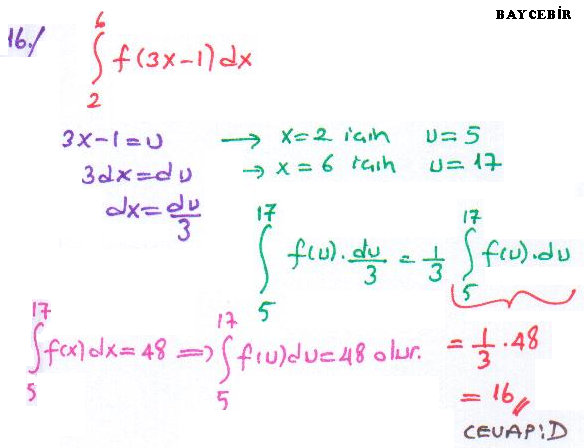 BAYCEBİR
16./ ∫₂⁶ f(3x-1)dx
3x-1=u → x=2 için u=5
3dx=du → x=6 için u=17
dx=du/3
∫₅¹⁷ f(u).du/3 = 1/3 ∫₅¹⁷ f(u).du
∫₅¹⁷ f(x)dx=48 ⟹ ∫₅¹⁷ f(u)du=48 olur. = 1/3 . 48
= 16//
CEVAP:D